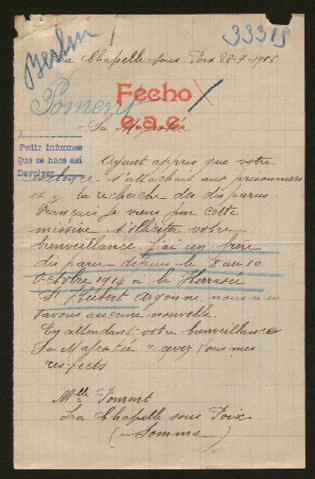 33315
Berlin
La Chapelle-sous Poix 28-7-1915
Poment
Fecho
e.a.e.
Sa Majesté
Pedir informes
Que se hace así
Devolver
Ayant appris que votre
s'attachait aux prisonniers
et à la recherche des disparus
Français je viens par cette
missive solliciter votre
bienveillance, j'ai un père
disparu depuis le 8 au 10
Octobre 1914 à la Harazée
St Hubert Argonne, nous n'en
savons aucune nouvelle.
En attendant votre bienveillance
Sa Majestée recevez tous mes
respects
Mlle Poment
La Chapelle sous Poix
(Somme)